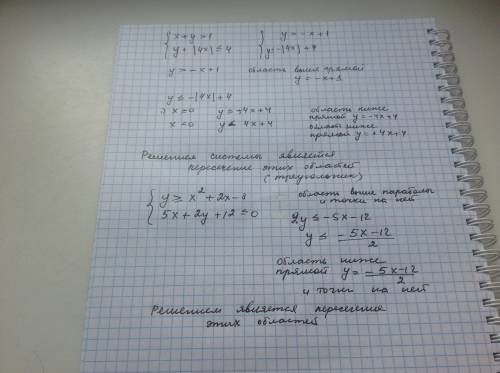 { x+y>1
y+|4x|≤4
{ y=-x+1
y≤-|4x|+4
y>-x+1 область выше прямой
y=-x+1
y≤-|4x|+4
x≥0 y=-4x+4 область ниже
прямой y=-4x+4
x<0 y≤4x+4 область ниже
прямой y=+4x+4
Решением системы является
пересечение этих областей
(треугольник)
{ y≥x²+2x-8
5x+2y+12≤0
область выше параболы
и точки на ней
2y≤-5x-12
y≤ (-5x-12)/2
область ниже
прямой y= (-5x-12)/2
и точки на ней
Решением является пересечение
этих областей